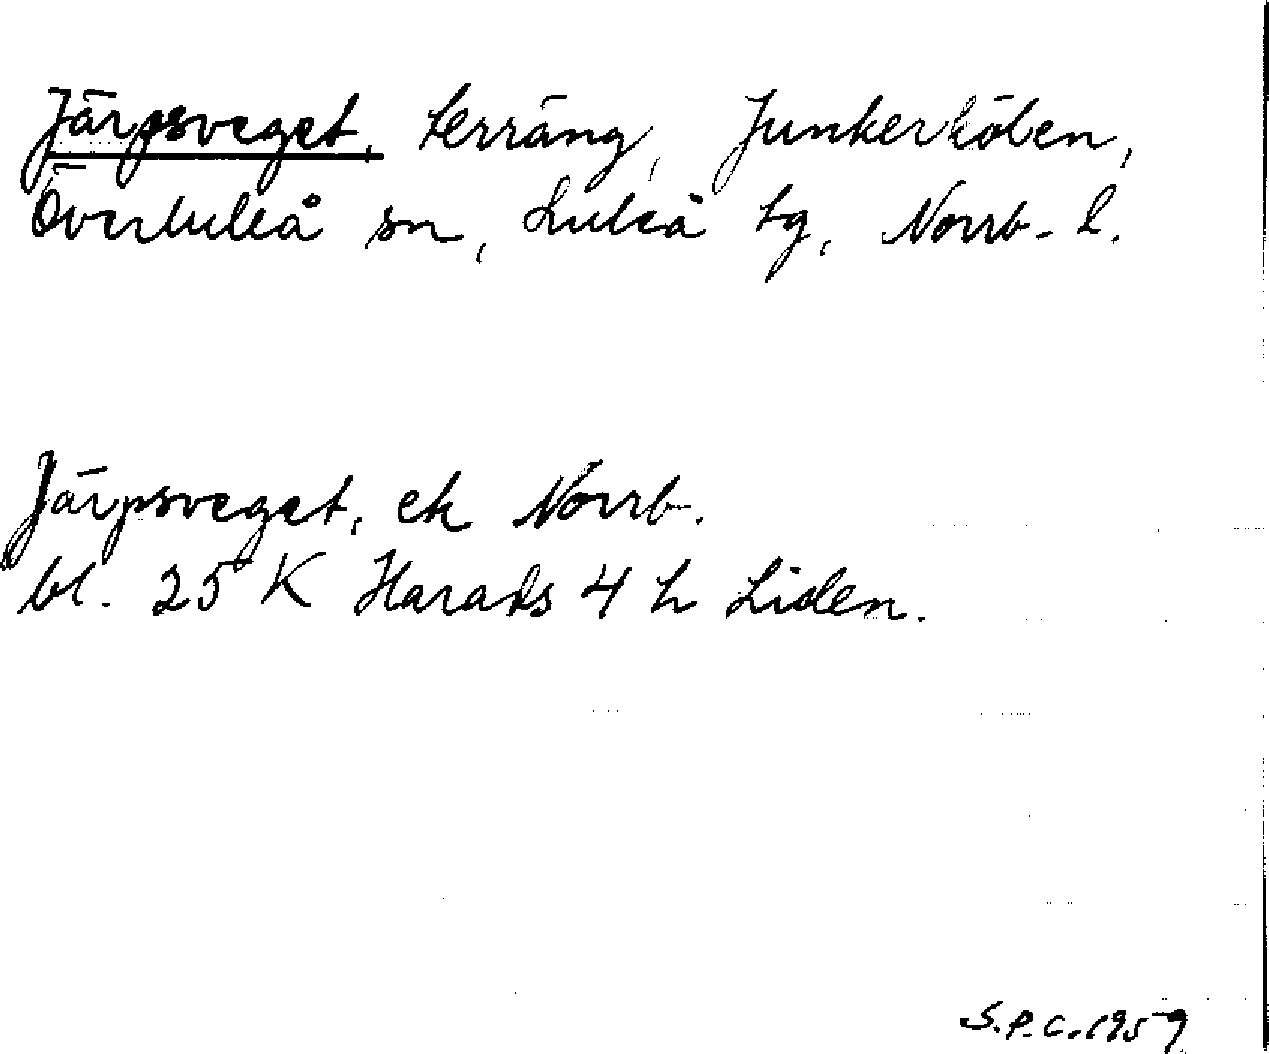 Järpsveget, terräng, Junkerhöden,
Överluleå sn, Luleå tg, Norrb. l.
Järpsveget, ek Norrb.
bl. 25 K Harads 4 h Liden.
S.P.C. 1959